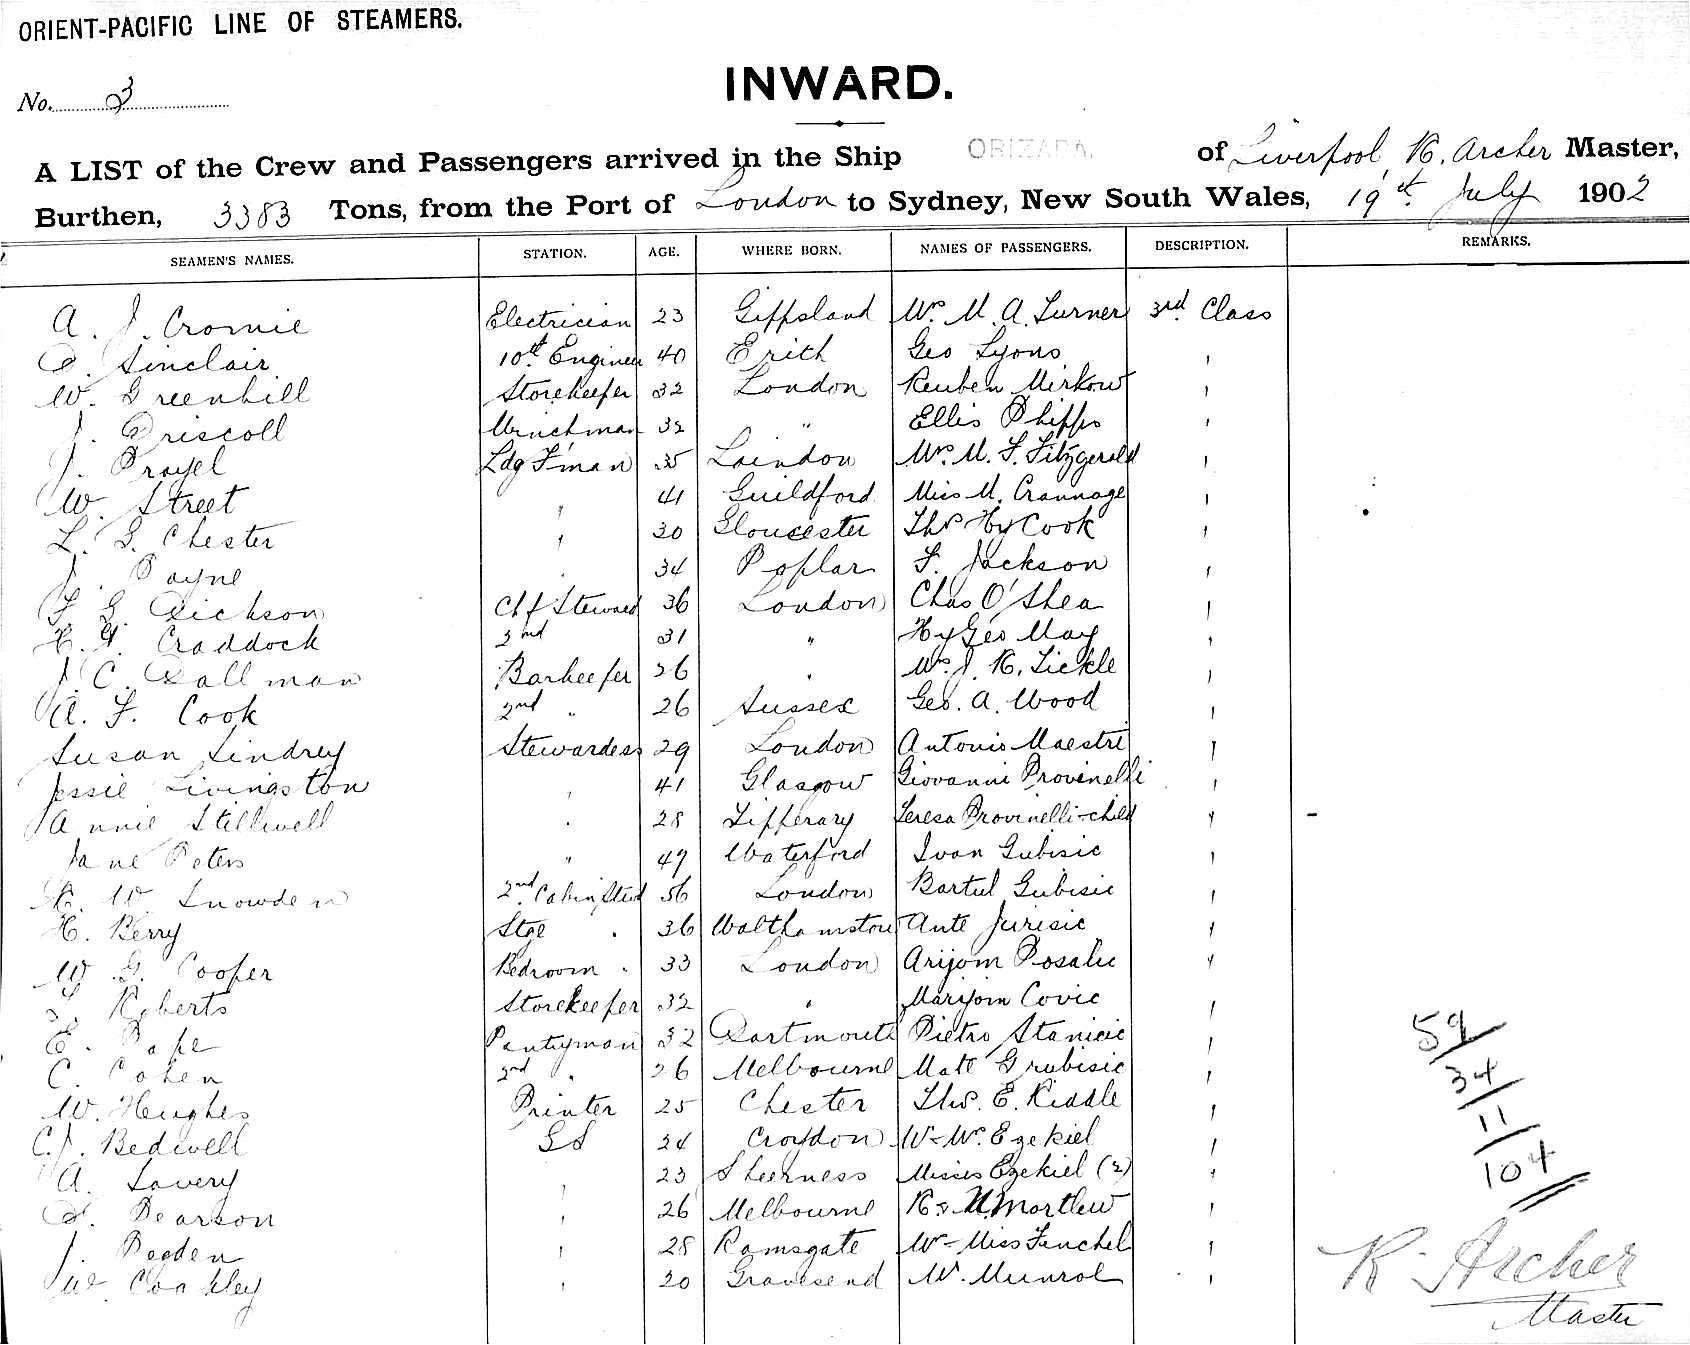 ORIENT-PACIFIC LINE OF STEAMERS.
No. 3
INWARD.
A LIST of the Crew and Passengers arrived in the Ship ORIZABA. of Liverpool, R. Archer Master,
Burthen, 3383 Tons, from the Port of London to Sydney, New South Wales, 19th July 1902
SEAMEN'S NAMES. STATION. AGE. WHERE BORN. NAMES OF PASSENGERS. DESCRIPTION. REMARKS.
A. J. Cromie Electrician 23 Gippsland Mr. M. A. Turner 3rd Class
D. Sinclair 10th Engineer 40 Erith Geo Lyons "
W. Greenhill Storekeeper 32 London Reuben Mirkow "
J. Driscoll Winchman 32 " Ellis Phipps "
J. Ldg F'man 35 Laindon Mr. M. F. Fitzgerald "
W. Street " 41 Guildford Miss M. Crannage "
L. G. Chester " 30 Gloucester Thos Hy Cook "
J. Payne " 34 Poplar F. Jackson "
F. G. Dickson Chf Steward 36 London Chas O'Shea "
H. G. Craddock 2nd 31 " Hy Geo May "
J. C. Dallman Barkeeper 26 " Mr. J. R. Tickle "
A. F. Cook 2nd " 26 Sussex Geo. A. Wood "
Susan Lindrey Stewardess 29 London Antonio Maestri "
Jessie Livingston " 41 Glasgow Giovanni Provinelli "
Annie Stillwell " 28 Tipperary Teresa Provinelli-child "
Jane Peters " 49 Waterford Ivan Gubisic "
R. W. Snowden 2nd Cabin Stewd 56 London Bartul Gubisic "
H. Berry Stge " 36 Walthamstow Ante Jurisic "
W. G. Cooper Bedroom " 33 London Arijom Rosalic "
S. Roberts Storekeeper 32 " Marijom Covic "
E. Pape Pantryman 32 Dartmouth Pietro Stanicic "
C. Cohen 2nd " 26 Melbourne Mate Grubisic "
W. Hughes Printer 25 Chester Thos. E. Riddle "
C. J. Bedwell GS 24 Croydon W- Mr. Ezekiel "
A. Lavery " 23 Sheerness Misses Ezekiel (2) "
D. Pearson " 26 Melbourne R. Mortlew "
J. Pegden " 28 Ramsgate W- Miss Finchel "
W. Coakley " 20 Gravesend W. Munrol "
59/
34/
11/
104
R. Archer
Master